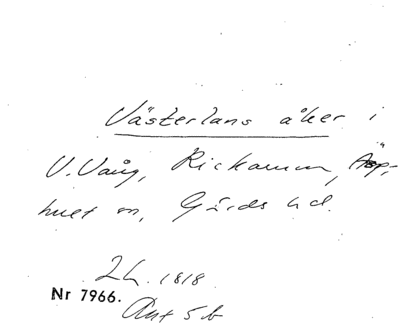 Västerlans åker i
V. Vång, Rickarum, Äsp-
huet sn, Gärds hd.
Lh. 1818
Nr 7966.
Akt 5b